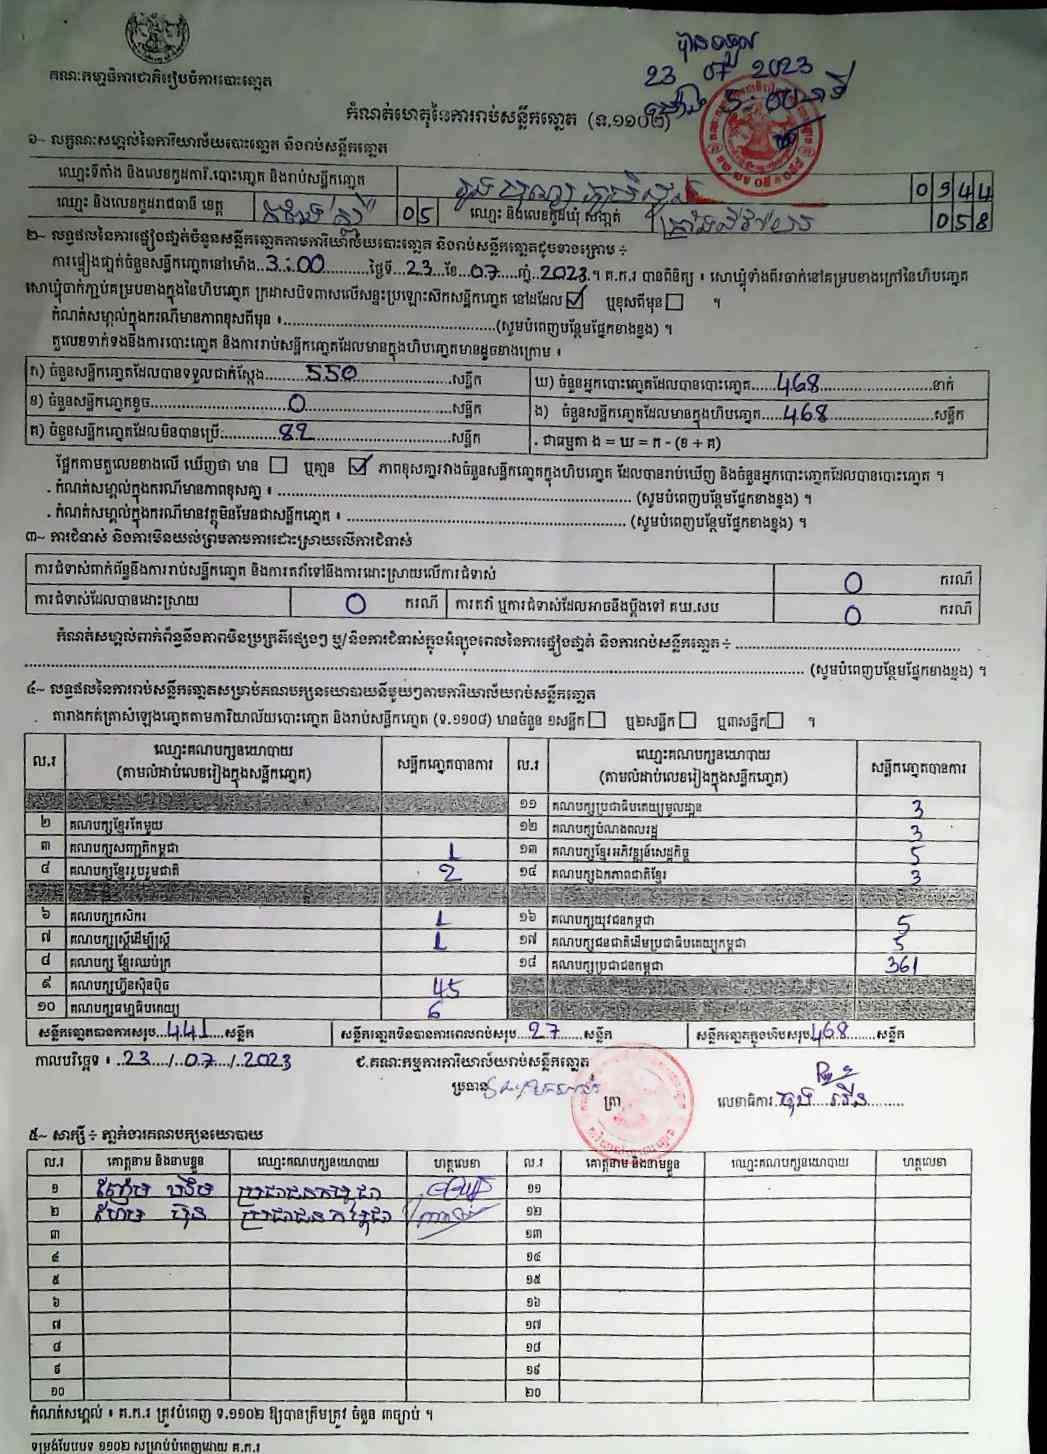 គណៈកម្មាធិការជាតិរៀបចំការបោះឆ្នោត
បានទទួល
23 07 2023
កំណត់ហេតុនៃការរាប់សន្លឹកឆ្នោត (ទ.១១០២)
១~ លក្ខណៈសម្គាល់នៃការិយាល័យបោះឆ្នោត និងរាប់សន្លឹកឆ្នោត
ឈ្មោះទីតាំង និងលេខកូដការិ.បោះឆ្នោត និងរាប់សន្លឹកឆ្នោត 0944
ឈ្មោះ និងលេខកូដរាជធានី ខេត្ត កំពង់ស្ពឺ 05 ឈ្មោះ និងលេខកូដឃុំ សង្កាត់ 058
២~ លទ្ធផលនៃការផ្ទៀងផ្ទាត់ចំនួនសន្លឹកឆ្នោតតាមការិយាល័យបោះឆ្នោត និងរាប់សន្លឹកឆ្នោតដូចខាងក្រោម ÷
ការផ្ទៀងផ្ទាត់ចំនួនសន្លឹកឆ្នោតនៅម៉ោង..3:00..........ថ្ងៃទី...23...ខែ...07...ឆ្នាំ..2023.។ គ.ក.រ បានពិនិត្យ ៖ សោឃ្មុំទាំងពីរចាក់នៅគម្របខាងក្រៅនៃហិបឆ្នោត
សោឃ្មុំចាក់ភ្ជាប់គម្របខាងក្នុងនៃហិបឆ្នោត ក្រដាសបិទពាសលើសន្ទះប្រឡោះស៊កសន្លឹកឆ្នោត នៅដដែល ☑ ឬខុសពីមុន ☐ ។
កំណត់សម្គាល់ក្នុងករណីមានភាពខុសពីមុន ៖..................................................(សូមបំពេញបន្ថែមផ្នែកខាងខ្នង) ។
តួលេខទាក់ទងនឹងការបោះឆ្នោត និងការរាប់សន្លឹកឆ្នោតដែលមានក្នុងហិបឆ្នោតមានដូចខាងក្រោម ៖
ក) ចំនួនសន្លឹកឆ្នោតដែលបានទទួលជាក់ស្តែង........550....................សន្លឹក ឃ) ចំនួនអ្នកបោះឆ្នោតដែលបានបោះឆ្នោត.....468........................នាក់
ខ) ចំនួនសន្លឹកឆ្នោតខូច............................0............................សន្លឹក ង) ចំនួនសន្លឹកឆ្នោតដែលមានក្នុងហិបឆ្នោត....468........................សន្លឹក
គ) ចំនួនសន្លឹកឆ្នោតដែលមិនបានប្រើ:...........82............................សន្លឹក . ជាធម្មតា ង = ឃ = ក - (ខ + គ)
ផ្អែកតាមតួលេខខាងលើ ឃើញថា មាន ☐ ឬគ្មាន ☑ ភាពខុសគ្នារវាងចំនួនសន្លឹកឆ្នោតក្នុងហិបឆ្នោត ដែលបានរាប់ឃើញ និងចំនួនអ្នកបោះឆ្នោតដែលបានបោះឆ្នោត ។
. កំណត់សម្គាល់ក្នុងករណីមានភាពខុសគ្នា ៖ .................................................................. (សូមបំពេញបន្ថែមផ្នែកខាងខ្នង) ។
. កំណត់សម្គាល់ក្នុងករណីមានវត្ថុមិនមែនជាសន្លឹកឆ្នោត ៖ .................................................. (សូមបំពេញបន្ថែមផ្នែកខាងខ្នង) ។
៣~ ការជំទាស់ និងការមិនយល់ព្រមតាមការដោះស្រាយលើការជំទាស់
ការជំទាស់ពាក់ព័ន្ធនឹងការរាប់សន្លឹកឆ្នោត និងការតវ៉ាទៅនឹងការដោះស្រាយលើការជំទាស់ 0 ករណី
ការជំទាស់ដែលបានដោះស្រាយ 0 ករណី ការតវ៉ា ឬការជំទាស់ដែលអាចនឹងប្តឹងទៅ គឃ.សប 0 ករណី
កំណត់សម្គាល់ពាក់ព័ន្ធនឹងភាពមិនប្រក្រតីផ្សេងៗ ឬ/និងការជំទាស់ក្នុងអំឡុងពេលនៃការផ្ទៀងផ្ទាត់ និងការរាប់សន្លឹកឆ្នោត ÷ ..........................................
.................................................................................................................. (សូមបំពេញបន្ថែមផ្នែកខាងខ្នង) ។
៤~ លទ្ធផលនៃការរាប់សន្លឹកឆ្នោតសម្រាប់គណបក្សនយោបាយនីមួយៗតាមការិយាល័យរាប់សន្លឹកឆ្នោត
តារាងកត់ត្រាសំឡេងឆ្នោតតាមការិយាល័យបោះឆ្នោត និងរាប់សន្លឹកឆ្នោត (ទ.១១០៨) មានចំនួន ១សន្លឹក ☐ ឬ២សន្លឹក ☐ ឬ៣សន្លឹក ☐ ។
ល.រ ឈ្មោះគណបក្សនយោបាយ (តាមលំដាប់លេខរៀងក្នុងសន្លឹកឆ្នោត) សន្លឹកឆ្នោតបានការ ល.រ ឈ្មោះគណបក្សនយោបាយ (តាមលំដាប់លេខរៀងក្នុងសន្លឹកឆ្នោត) សន្លឹកឆ្នោតបានការ
១១ គណបក្សប្រជាធិបតេយ្យមូលដ្ឋាន 3
២ គណបក្សខ្មែរតែមួយ ១២ គណបក្សបំណងពលរដ្ឋ 3
៣ គណបក្សសញ្ជាតិកម្ពុជា 1 ១៣ គណបក្សខ្មែរអភិវឌ្ឍន៍សេដ្ឋកិច្ច 5
៤ គណបក្សខ្មែររួបរួមជាតិ 2 ១៤ គណបក្សឯកភាពជាតិខ្មែរ 3
៦ គណបក្សកសិករ 1 ១៦ គណបក្សយុវជនកម្ពុជា 5
៧ គណបក្សស្ត្រីដើម្បីស្ត្រី 1 ១៧ គណបក្សជនជាតិដើមប្រជាធិបតេយ្យកម្ពុជា 5
៨ គណបក្ស ខ្មែរឈប់ក្រ ១៨ គណបក្សប្រជាជនកម្ពុជា 361
៩ គណបក្សហ្វ៊ុនស៊ិនប៉ិច 45
១០ គណបក្សធម្មាធិបតេយ្យ 6
សន្លឹកឆ្នោតបានការសរុប..441....សន្លឹក សន្លឹកឆ្នោតមិនបានការពេលរាប់សរុប..27......សន្លឹក សន្លឹកឆ្នោតក្នុងហិបសរុប468........សន្លឹក
កាលបរិច្ឆេទ ៖ ..23..../..07..../..2023 ជ.គណៈកម្មការការិយាល័យរាប់សន្លឹកឆ្នោត
ប្រធាន ត្រា លេខាធិការ
៥~ សាក្សី ÷ ភ្នាក់ងារគណបក្សនយោបាយ
ល.រ គោត្តនាម និងនាមខ្លួន ឈ្មោះគណបក្សនយោបាយ ហត្ថលេខា ល.រ គោត្តនាម និងនាមខ្លួន ឈ្មោះគណបក្សនយោបាយ ហត្ថលេខា
១ ប្រជាជនកម្ពុជា ១១
២ ប្រជាជនកម្ពុជា ១២
៣ ១៣
៤ ១៤
៥ ១៥
៦ ១៦
៧ ១៧
៨ ១៨
៩ ១៩
១០ ២០
កំណត់សម្គាល់ ៖ គ.ក.រ ត្រូវបំពេញ ទ.១១០២ ឱ្យបានត្រឹមត្រូវ ចំនួន ៣ច្បាប់ ។
ទម្រង់បែបបទ ១១០២ សម្រាប់បំពេញដោយ គ.ក.រ